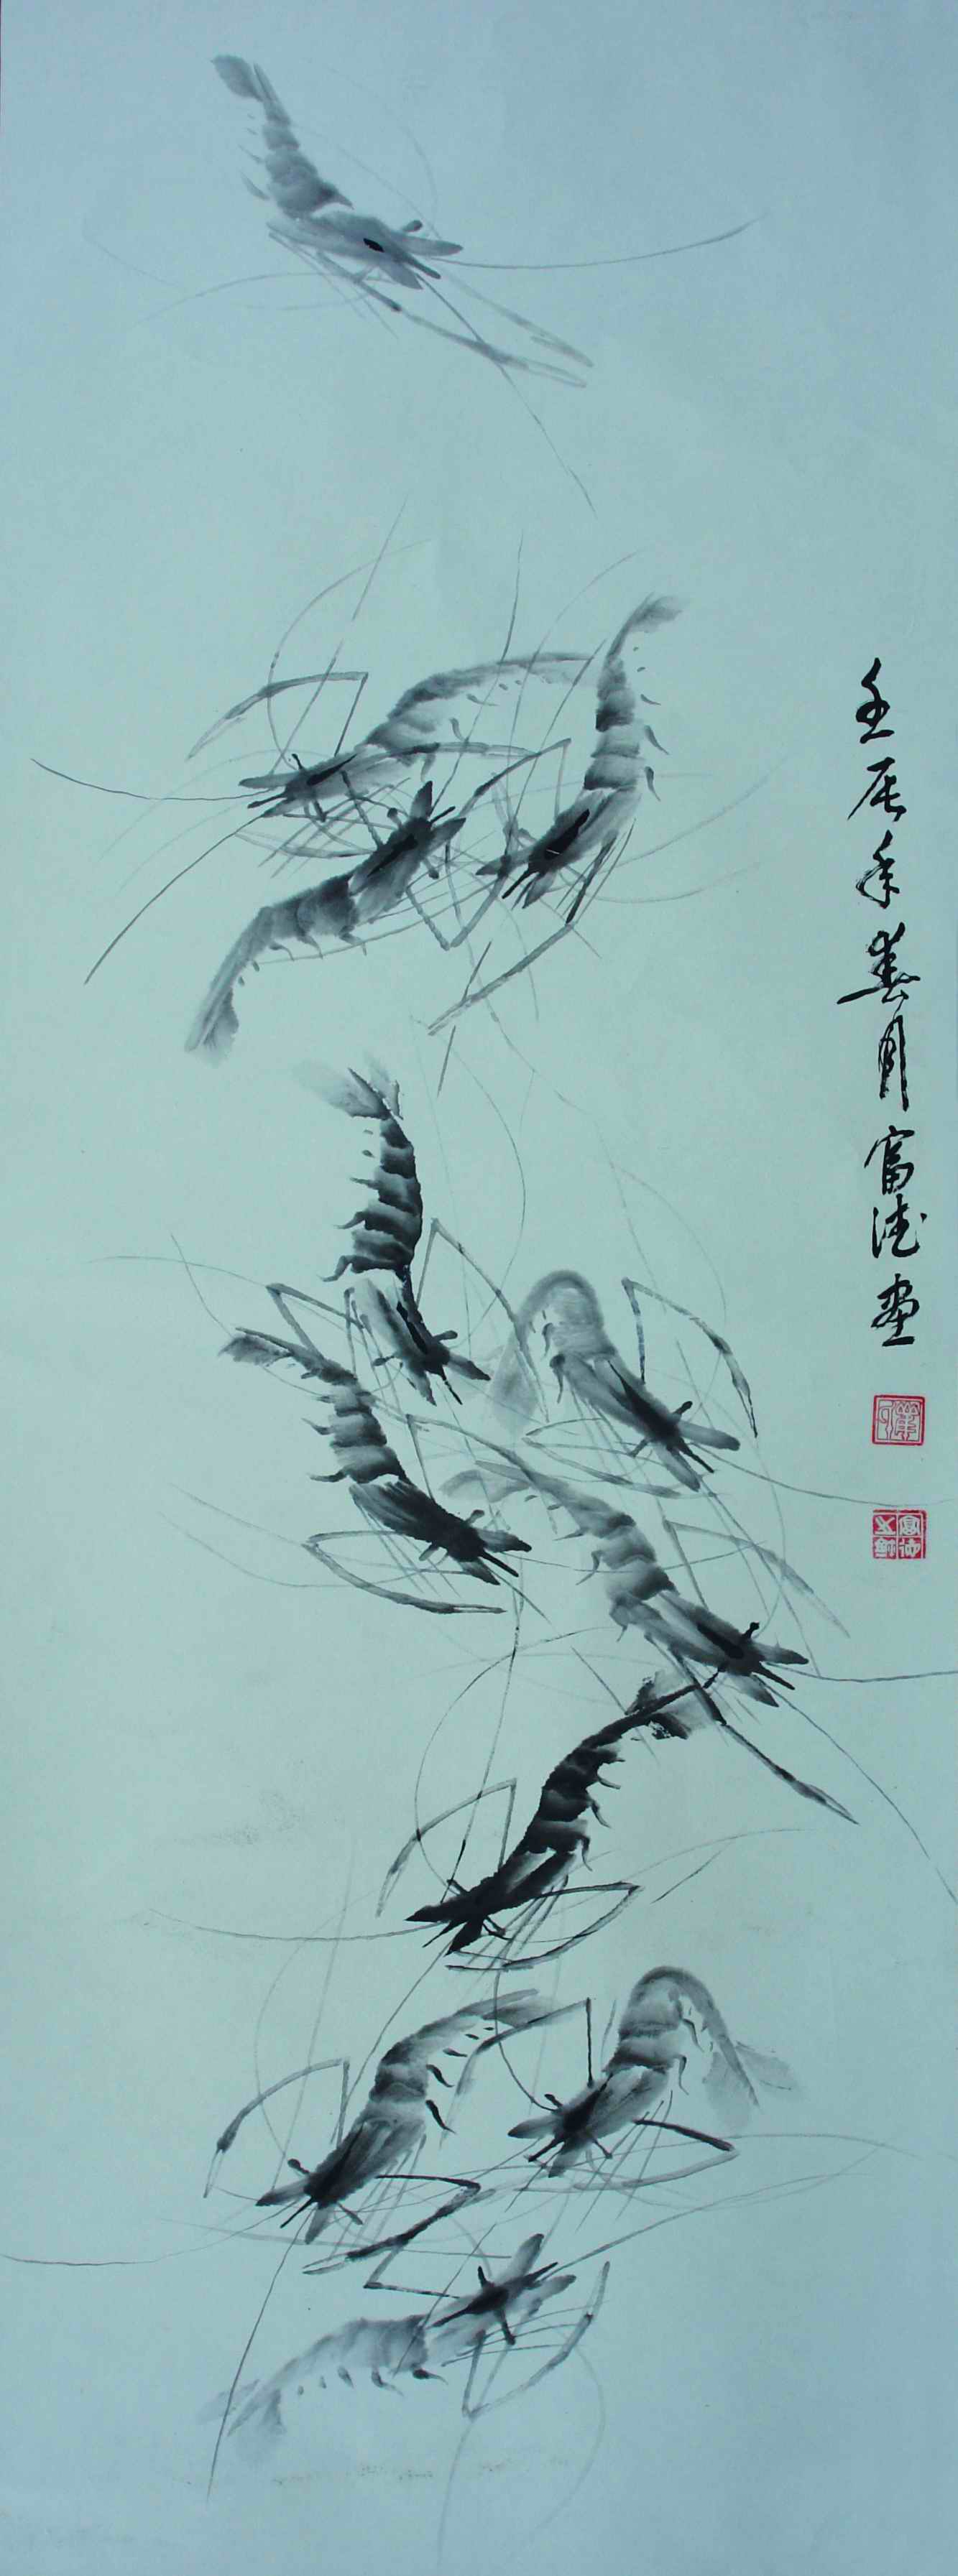 壬辰年春月富德画